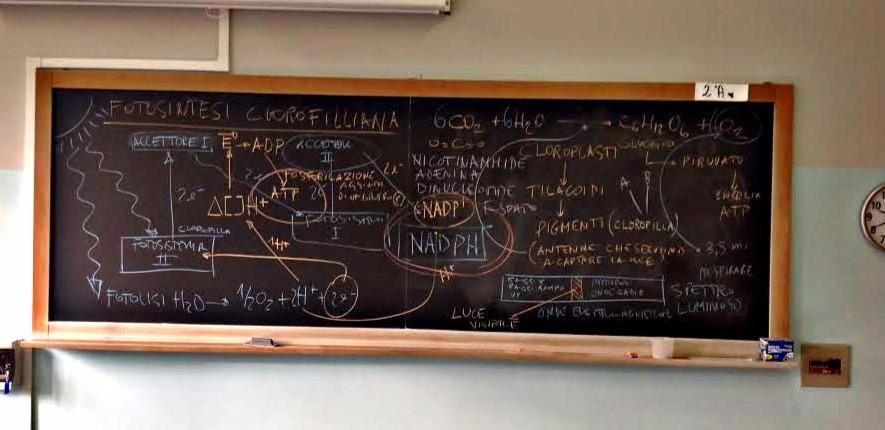 2ªA
FOTOSINTESI CLOROFILLIANA
ACCETTORE I
E
ADP
ACCETTORE
II
2e⁻
2e⁻
FOSFORILAZIONE
ATP
Δ[]H+
FOTOSISTEMA
I
CLOROFILLA
FOTOSISTEMA
II
FOTOLISI H₂O → 1/2O₂ + 2H⁺ + 2e⁻
6CO₂ + 6H₂O → C₆H₁₂O₆ + 6O₂
O=C=O
NICOTINAMMIDE
ADENINA
DINUCLEOTIDE
FOSFATO
NADP⁺
NADPH
H⁺
CLOROPLASTI
TILACOIDI
PIGMENTI (CLOROFILLA)
(ANTENNE CHE SERVONO
A CAPTARE LA LUCE
GLUCOSIO
PIRUVATO
ENERGIA
ATP
A
B
3,5
RAGGI X
RAGGI GAMMA
UV
ONDE RADIO
LUCE
VISIBILE
ONDE ELETTROMAGNETICHE
SPETTRO
LUMINOSO